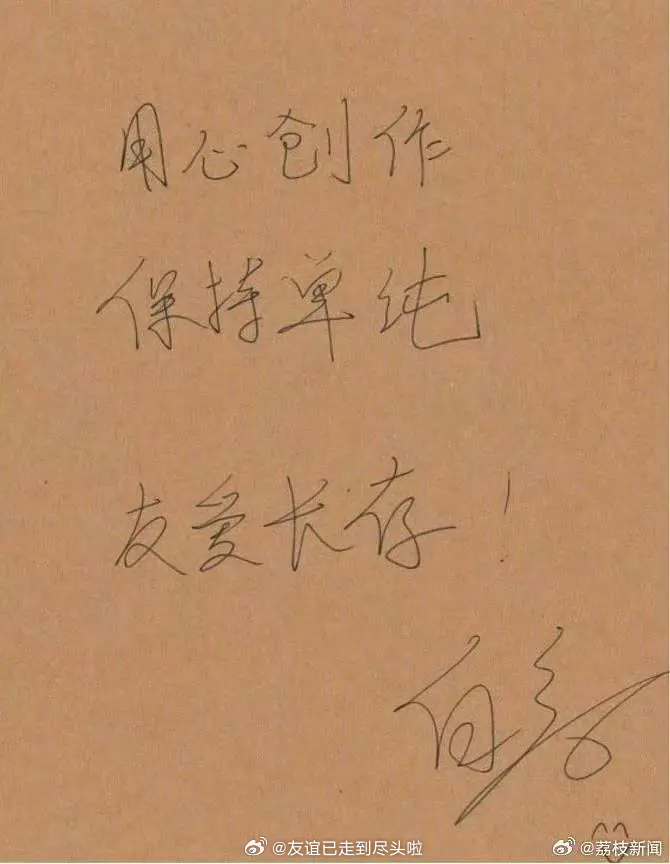 用心创作
保持单纯
友爱长存！
@友谊已走到尽头啦
@荔枝新闻